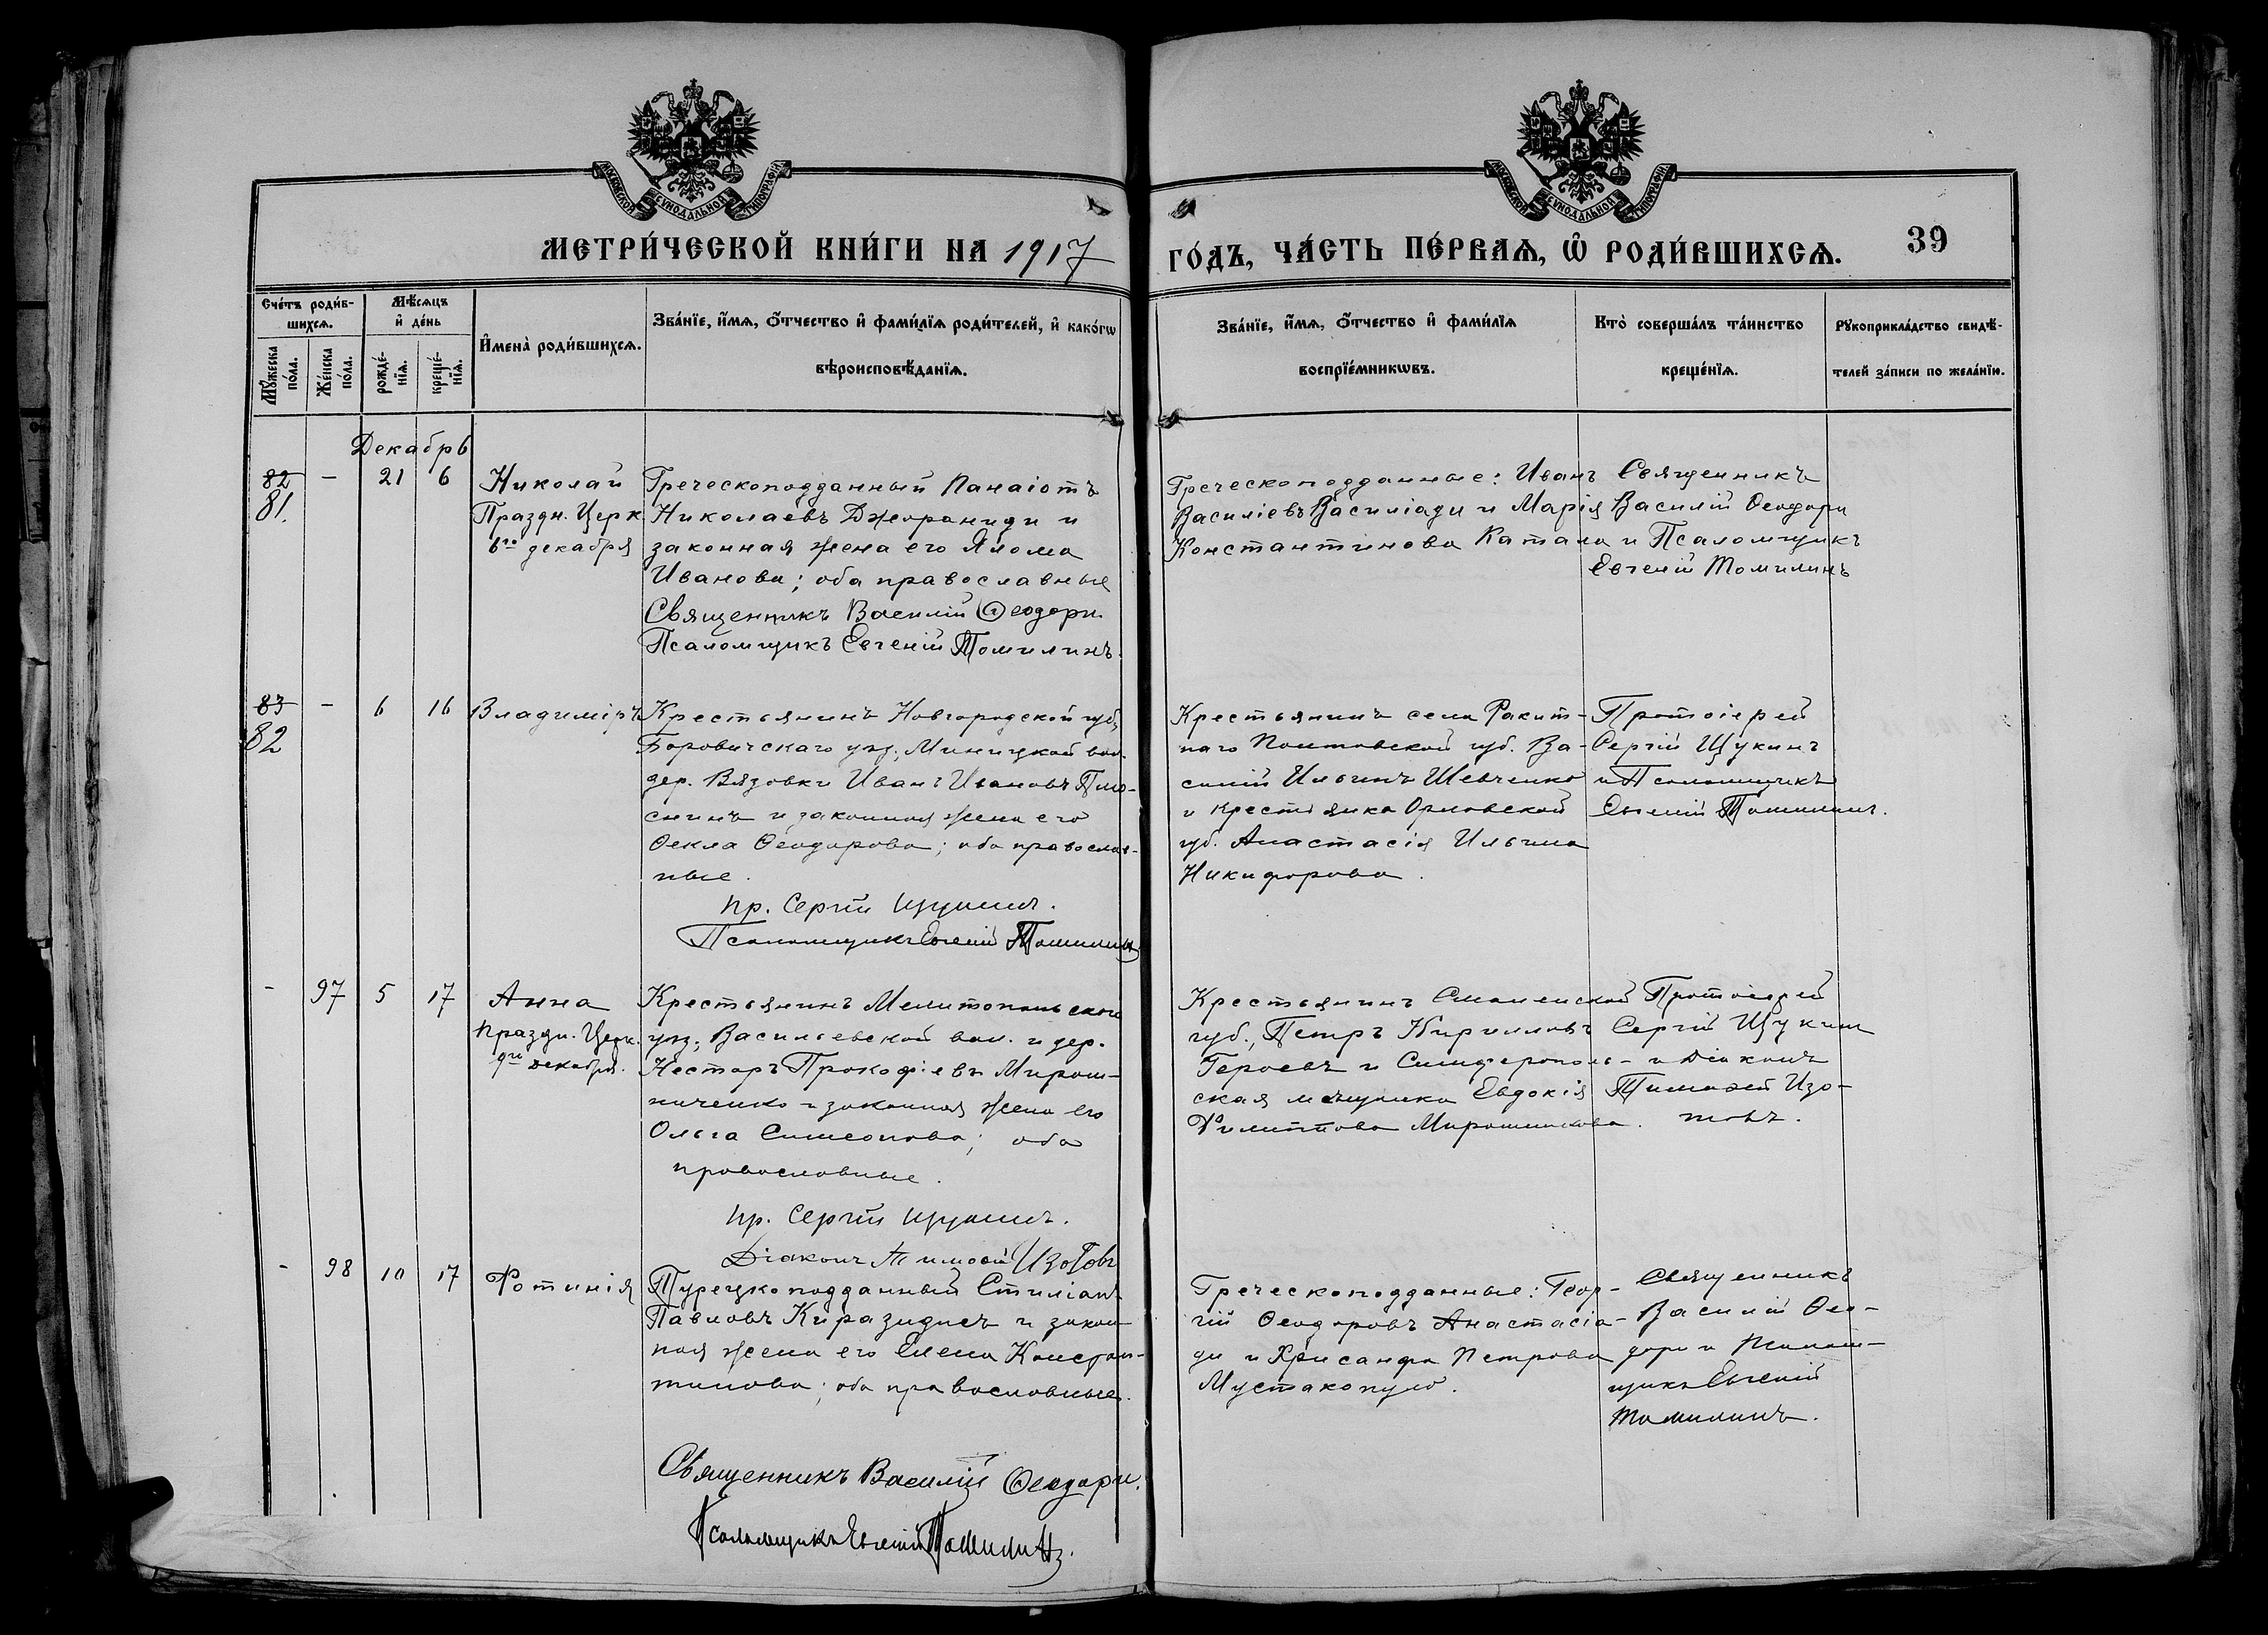 МОСКОВСКОЙ СѴНОДАЛЬНОЙ ТИПОГРАФІИ
МОСКОВСКОЙ СѴНОДАЛЬНОЙ ТИПОГРАФІИ
МЕТРИ́ЧЕСКОЙ КНИ́ГИ НА 1917
ГО́ДЪ, ЧА́СТЬ ПЕ́РВАѦ, Ѡ҆ РОДИ́ВШИХСѦ.
39
Сче́тъ роди́в-
шихсѧ.
Мꙋ́жеска
по́ла.
Же́нска
по́ла.
Мѣ́сѧцъ
и҆ де́нь
рожде́-
нїѧ.
креще́-
нїѧ.
И҆мена̀ роди́вшихсѧ.
Зва́нїе, и҆́мѧ, ѻ҆́тчество и҆ фами́лїѧ роди́телей, и҆ како́гѡ
вѣроисповѣ́данїѧ.
Зва́нїе, и҆́мѧ, ѻ҆́тчество и҆ фами́лїѧ
воспрїе́мникѡвъ.
Кто̀ соверша́лъ та́инство
креще́нїѧ.
Рꙋкоприкла́дство свидѣ́-
телей за́писи по жела́нїю.
Декабрь
82
81.
-
21
6
Николай
Праздн. Церк
6го декабря
Греческоподданный Панаіотъ
Николаевъ Джеораниди и
законная жена его Яломa
Иванова; оба православные
Священникъ Василій Ѳеодори.
Псаломщикъ Евгеній Томилинъ.
Греческоподданные: Иванъ
Василіевъ Василіади и Марія
Константинова Катала
Священникъ
Василій Ѳеодори
и Псаломщикъ
Евгеній Томилинъ
83
82
-
6
16
Владиміръ
Крестьянинъ Новгородской губ,
Боровичскаго уѣз., Миницкой вол.
дер. Вязовки Иванъ Ивановъ Плю-
снинъ и законная жена его
Ѳекла Ѳеодорова; оба православ-
ные.
Пр. Сергій Щукинъ.
Псаломщикъ Евгеній Томилинъ
Крестьянинъ села Ракит-
наго Полтавской губ. Ва-
силій Ильинъ Шевченко
и крестьянка Орловской
губ. Анастасія Ильина
Никифорова.
Протоіерей
Сергій Щукинъ
и Псаломщикъ
Евгеній Томилинъ.
-
97
5
17
Анна
Праздн. Церк.
9го декабря.
Крестьянинъ Мелитопольскаго
уѣз., Васильевской вол. и дер.
Несторъ Прокофіевъ Мирош-
ниченко и законная жена его
Ольга Симеонова; оба
православные.
Пр. Сергій Щукинъ.
Діаконъ Тимоѳей Изотовъ
Крестьянинъ Смоленской
губ., Петръ Кирилловъ
Героевъ и Симферополь-
ская мѣщанка Евдокія
Филиппова Мирошникова.
Протоіерей
Сергій Щукинъ
и Діаконъ
Тимоѳей Изо-
товъ.
-
98
10
17
Фотинія
Турецкоподданный Стиліанъ
Павловъ Киразидисъ и закон-
ная жена его Елена Констан-
тинова; оба православные.
Священникъ Василій Ѳеодори.
Псаломщикъ Евгеній Томилинъ.
Греческоподданные: Геор-
гій Ѳеодоровъ Анастасіа-
ди и Хрисанфа Петрова
Мустакопуло.
Священникъ
Василій Ѳео-
дори и Псалом-
щикъ Евгеній
Томилинъ.